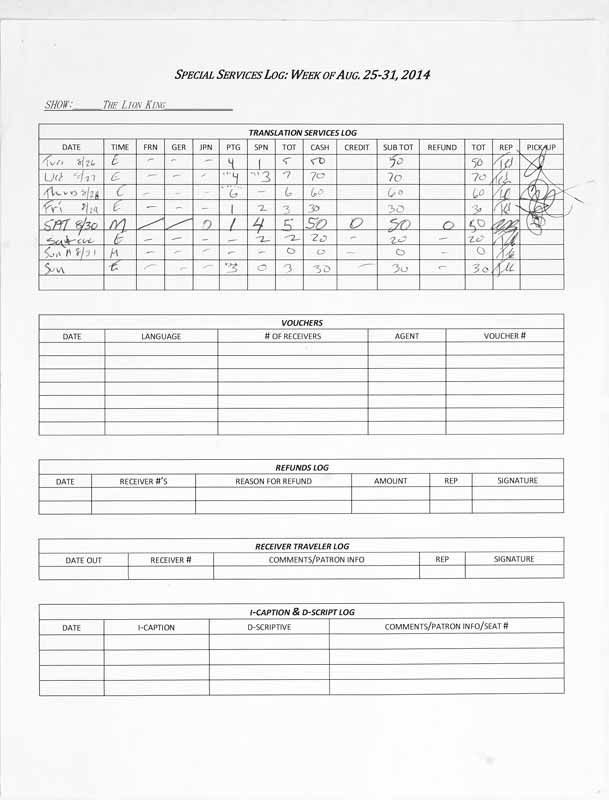 SPECIAL SERVICES LOG: WEEK OF AUG. 25-31, 2014
SHOW: THE LION KING
TRANSLATION SERVICES LOG
DATE TIME FRN GER JPN PTG SPN TOT CASH CREDIT SUB TOT REFUND TOT REP PICK UP
Tues 8/26 E - - - 4 1 5 50 50 50
Wed 8/27 E - - - 4 3 7 70 70 70
Thurs 8/28 E - - - 6 - 6 60 60 60
Fri 8/29 E - - - 1 2 3 30 30 30
SAT 8/30 M / / 0 1 4 5 50 0 50 0 50
Sat eve E - - - - 2 2 20 - 20 - 20
Sun M 8/31 M - - - - - 0 0 - 0 - 0
Sun E - - - 3 0 3 30 - 30 - 30
VOUCHERS
DATE LANGUAGE # OF RECEIVERS AGENT VOUCHER #
REFUNDS LOG
DATE RECEIVER #'S REASON FOR REFUND AMOUNT REP SIGNATURE
RECEIVER TRAVELER LOG
DATE OUT RECEIVER # COMMENTS/PATRON INFO REP SIGNATURE
I-CAPTION & D-SCRIPT LOG
DATE I-CAPTION D-SCRIPTIVE COMMENTS/PATRON INFO/SEAT #